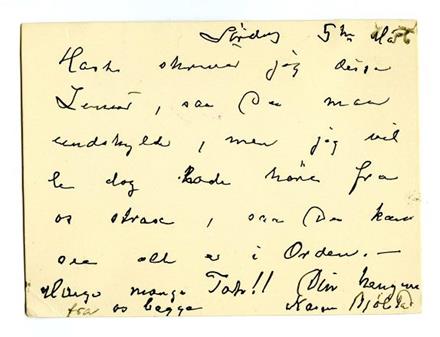 Lördag 5te
Hast skriver jeg disse
Linier, saa Du maa
undskylde, men jeg vil
dog bade höre fra
os strax, saa Du kan
see alt er i Orden. —
Mange mange Tak!! Din hengivne
fra os begge Karen